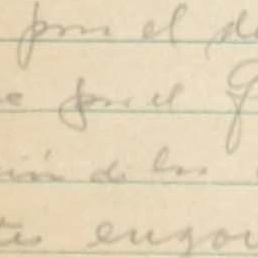 por el de
e por el G
ción de los
tes engor